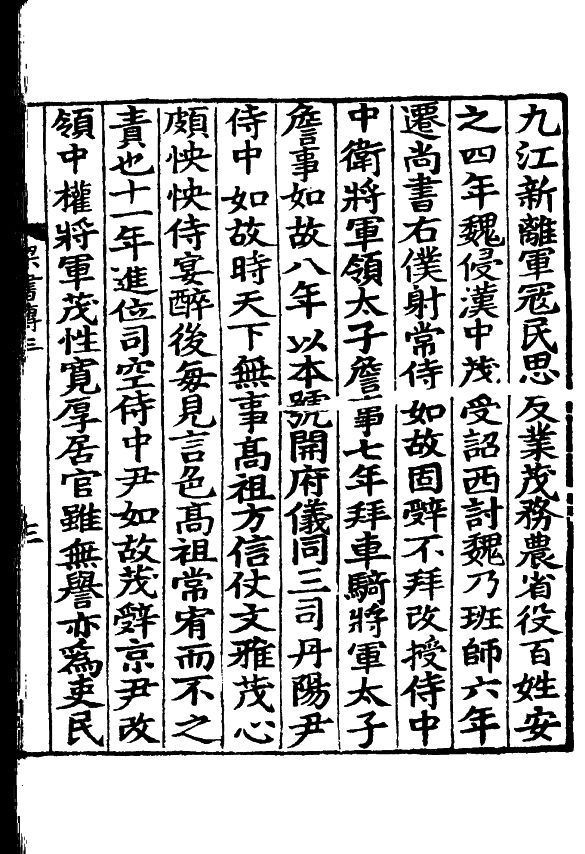 九江新離軍冦民思反業茂務農省役百姓安
之四年魏侵漢中茂受詔西討魏乃班師六年
遷尚書右僕射常侍如故固辭不拜改授侍中
中衛將軍領太子詹事七年拜車騎將軍太子
詹事如故八年以本號開府儀同三司丹陽尹
侍中如故時天下無事髙祖方信仗文雅茂心
頗怏怏侍宴醉後每見言色髙祖常宥而不之
責也十一年進位司空侍中尹如故茂辭京尹改
領中權將軍茂性寛厚居官雖無譽亦爲吏民
梁書傳三